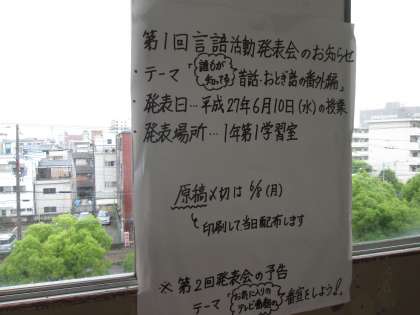 第1回言語活動発表会のお知らせ
・テーマ「誰もが知ってる昔話・おとぎ話の番外編」
・発表日…平成27年6月10日(水)の授業
・発表場所…1年第1学習室
原稿〆切は6/8(月)
→印刷して当日配布します
※第2回発表会の予告
テーマ「お気に入りのテレビ番組の番宣をしよう!」